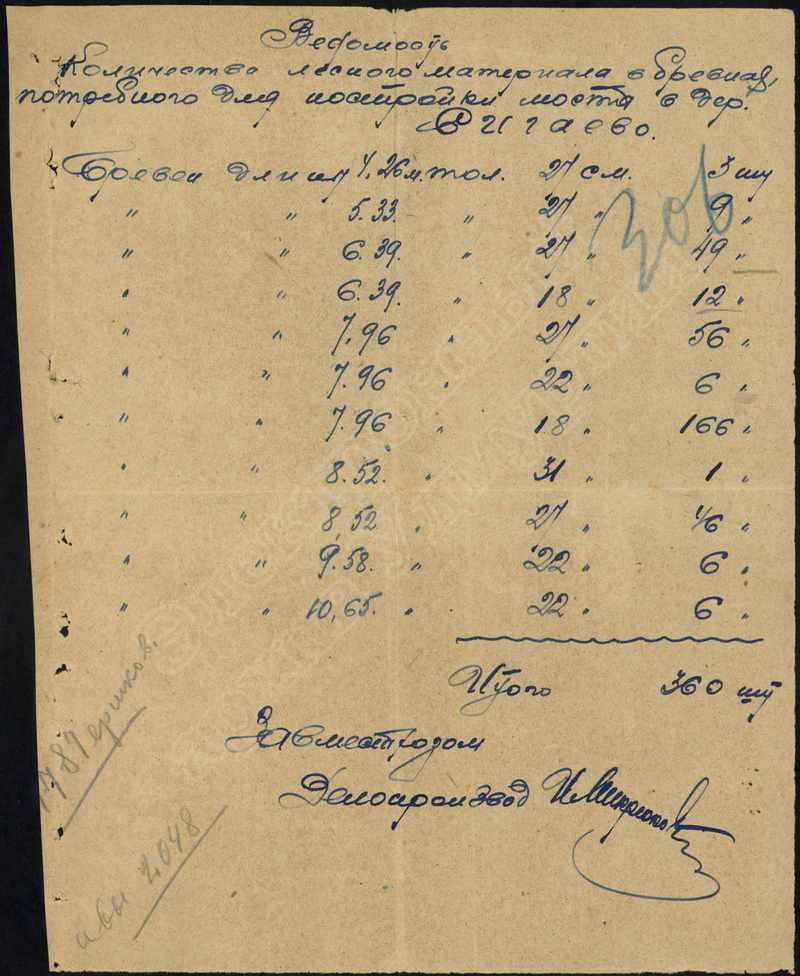 Ведомость
Количества лесного материала в бревнах,
потребного для постройки моста в дер.
Сигаево.
Бревен длиной 4,26 м. тол. 27 см. 3 шт
" " 5.33. " 27 " 9 "
" " 6.39. " 27 " 49 "
" " 6.39. " 18 " 12 "
" " 7,96 " 27 " 56 "
" " 7.96 " 22 " 6 "
" " 7.96 " 18 " 166 "
" " 8.52. " 31 " 1 "
" " 8,52 " 27 " 46 "
" " 9.58. " 22 " 6 "
" " 10,65. " 22 " 6 "
Итого 360 шт
Завместродом
Делопроизвод
306